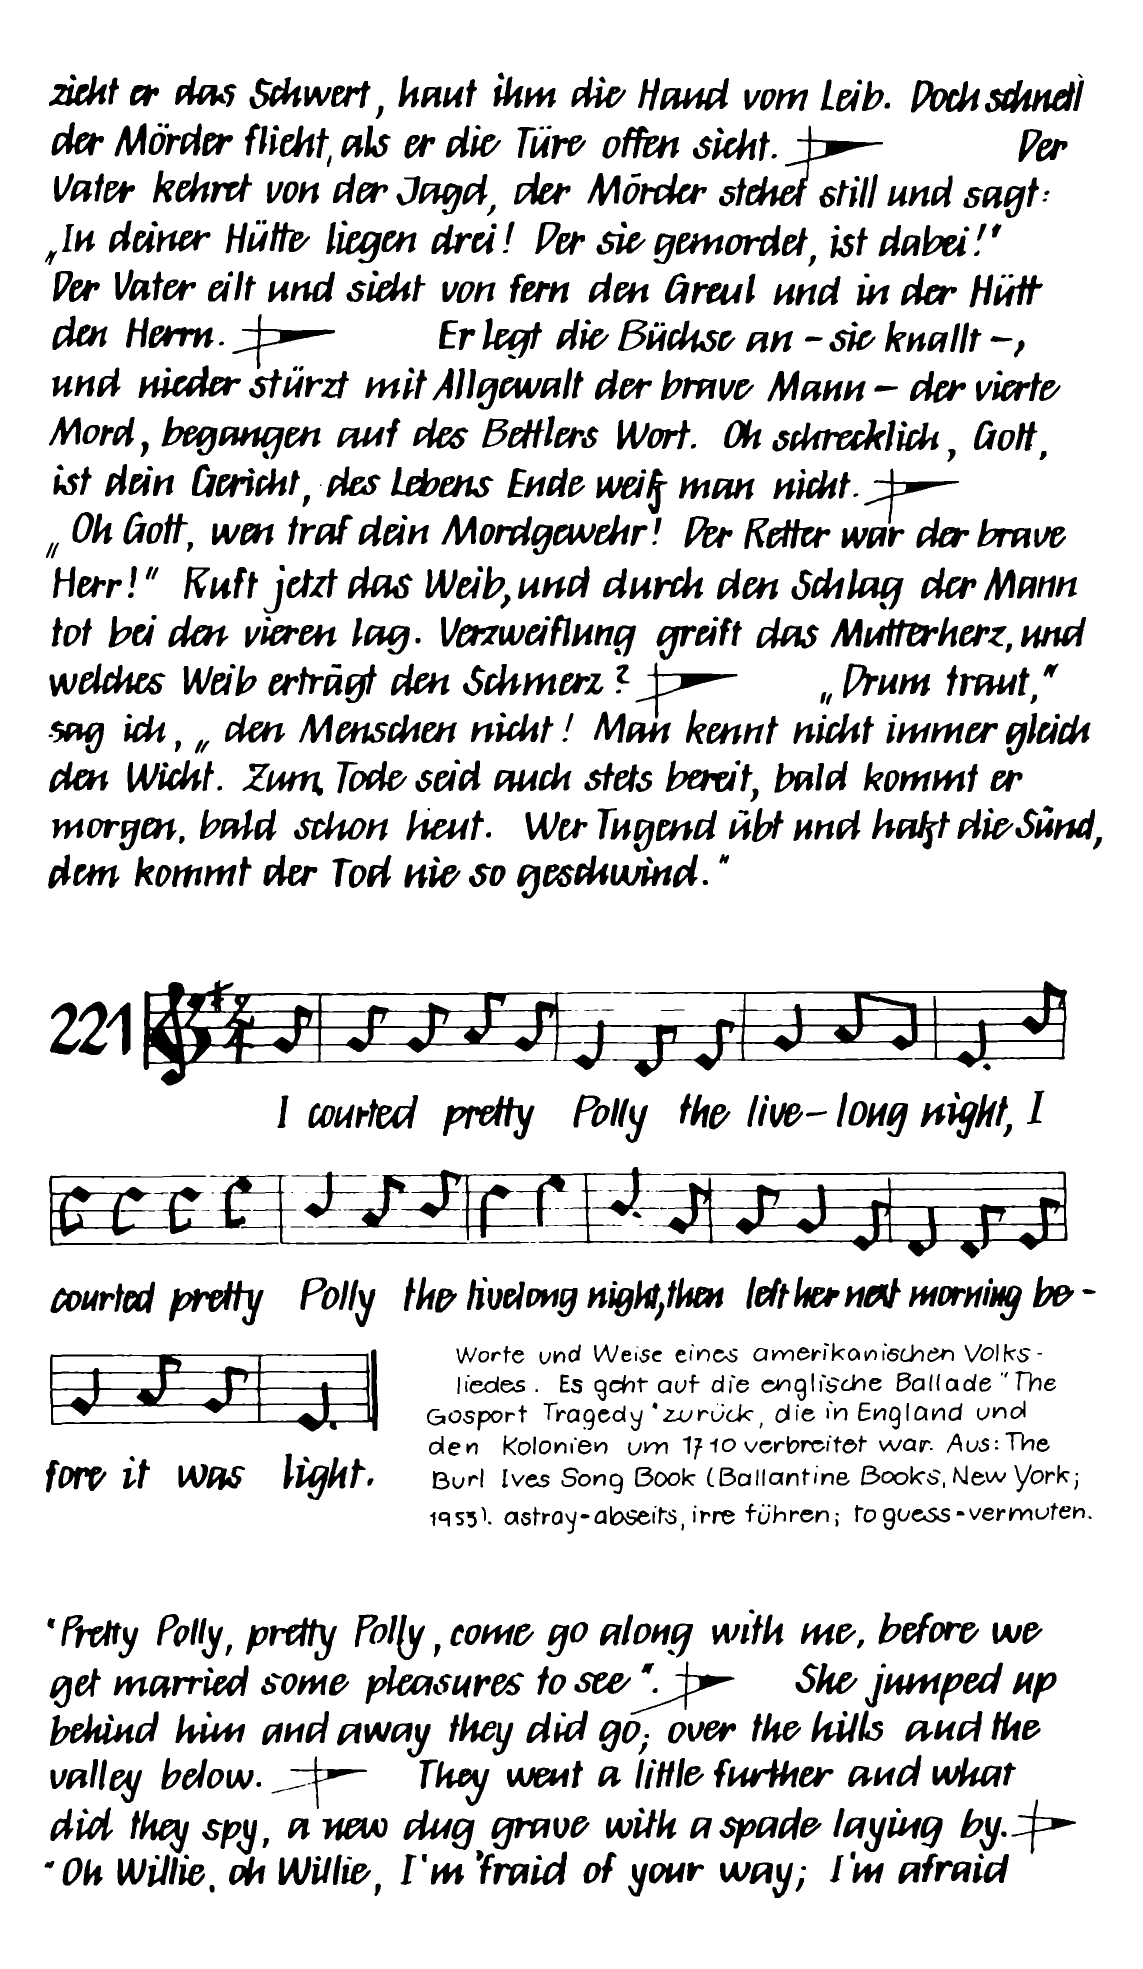 zieht er das Schwert, haut ihm die Hand vom Leib. Doch schnell
der Mörder flieht, als er die Türe offen sieht. Der
Vater kehret von der Jagd, der Mörder stehet still und sagt:
„In deiner Hütte liegen drei! Der sie gemordet, ist dabei!"
Der Vater eilt und sieht von fern den Greul und in der Hütt
den Herrn. Er legt die Büchse an – sie knallt –,
und nieder stürzt mit Allgewalt der brave Mann – der vierte
Mord, begangen auf des Bettlers Wort. Oh schrecklich, Gott,
ist dein Gericht, des Lebens Ende weiß man nicht.
„Oh Gott, wen traf dein Mordgewehr! Der Retter war der brave
Herr!" Ruft jetzt das Weib, und durch den Schlag der Mann
tot bei den vieren lag. Verzweiflung greift das Mutterherz, und
welches Weib erträgt den Schmerz? „Drum traut,"
sag ich, „den Menschen nicht! Man kennt nicht immer gleich
den Wicht. Zum Tode seid auch stets bereit, bald kommt er
morgen, bald schon heut. Wer Tugend übt und haßt die Sünd,
dem kommt der Tod nie so geschwind."
221 2/4
I courted pretty Polly the live-long night, I
courted pretty Polly the livelong night, then left her next morning be-
fore it was light.
Worte und Weise eines amerikanischen Volks-
liedes. Es geht auf die englische Ballade "The
Gosport Tragedy" zurück, die in England und
den Kolonien um 1710 verbreitet war. Aus: The
Burl Ives Song Book (Ballantine Books, New York;
1953). astray-abseits, irre führen; to guess-vermuten.
"Pretty Polly, pretty Polly, come go along with me, before we
get married some pleasures to see". She jumped up
behind him and away they did go; over the hills and the
valley below. They went a little further and what
did they spy, a new dug grave with a spade laying by.
"Oh Willie, oh Willie, I'm 'fraid of your way; I'm afraid